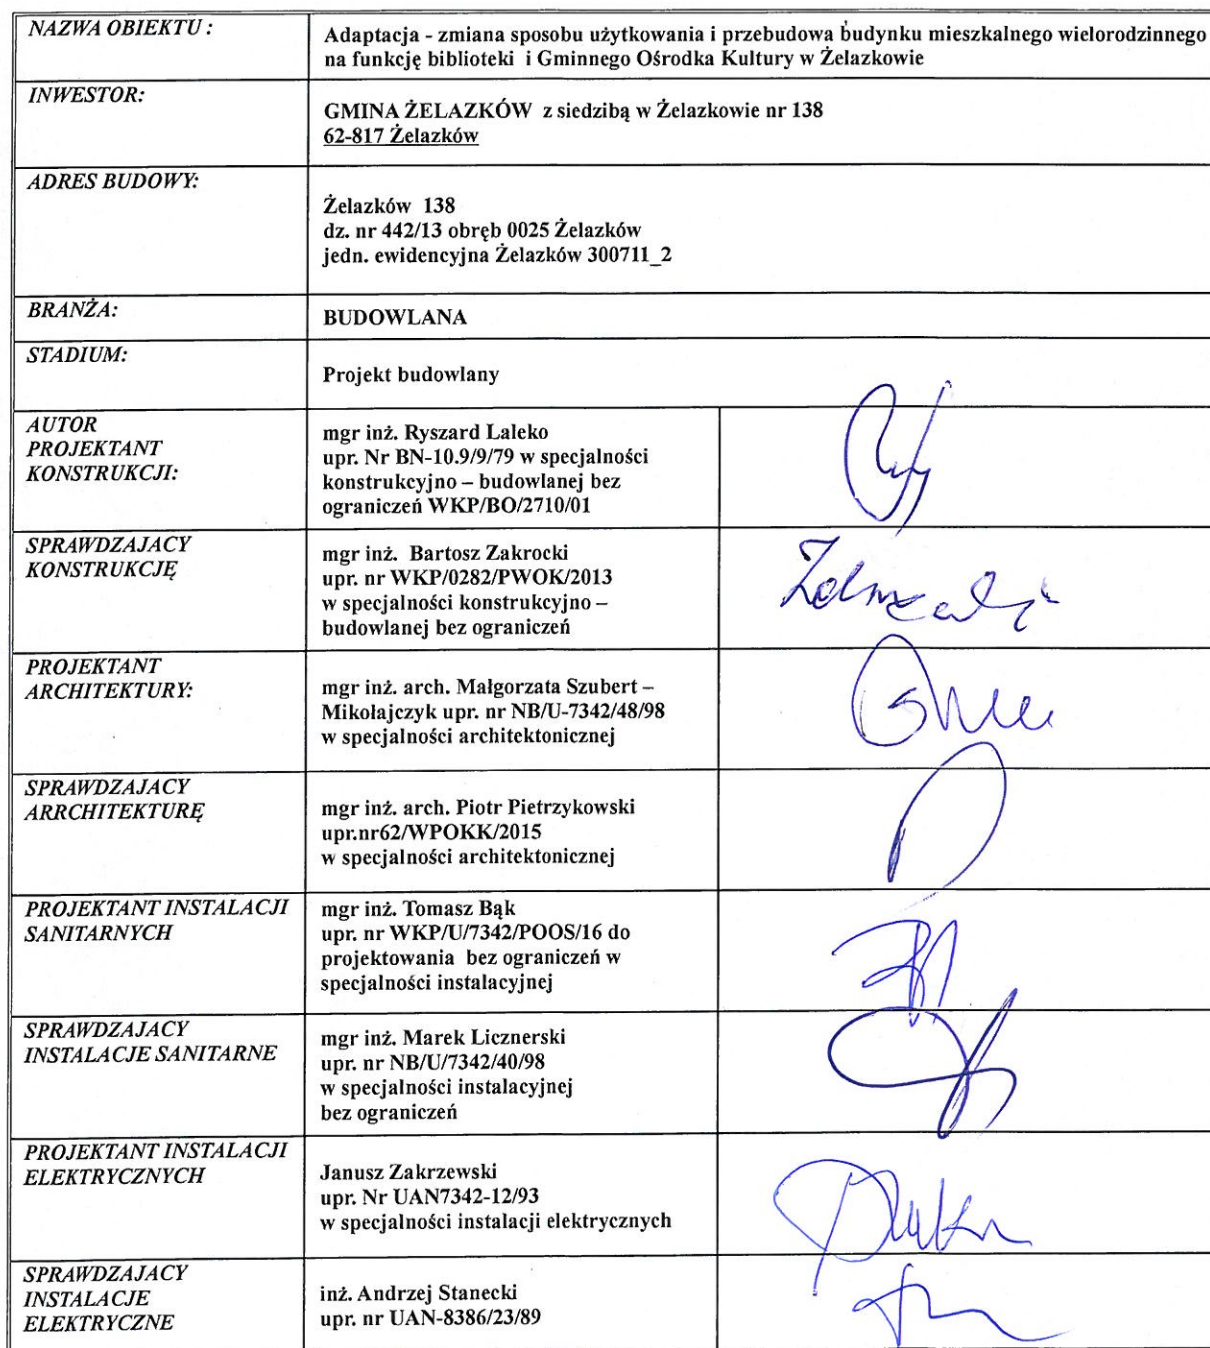 NAZWA OBIEKTU :
Adaptacja - zmiana sposobu użytkowania i przebudowa budynku mieszkalnego wielorodzinnego
na funkcję biblioteki i Gminnego Ośrodka Kultury w Żelazkowie
INWESTOR:
GMINA ŻELAZKÓW z siedzibą w Żelazkowie nr 138
62-817 Żelazków
ADRES BUDOWY:
Żelazków 138
dz. nr 442/13 obręb 0025 Żelazków
jedn. ewidencyjna Żelazków 300711_2
BRANŻA:
BUDOWLANA
STADIUM:
Projekt budowlany
AUTOR
PROJEKTANT
KONSTRUKCJI:
mgr inż. Ryszard Laleko
upr. Nr BN-10.9/9/79 w specjalności
konstrukcyjno – budowlanej bez
ograniczeń WKP/BO/2710/01
SPRAWDZAJACY
KONSTRUKCJĘ
mgr inż. Bartosz Zakrocki
upr. nr WKP/0282/PWOK/2013
w specjalności konstrukcyjno –
budowlanej bez ograniczeń
PROJEKTANT
ARCHITEKTURY:
mgr inż. arch. Małgorzata Szubert –
Mikołajczyk upr. nr NB/U-7342/48/98
w specjalności architektonicznej
SPRAWDZAJACY
ARRCHITEKTURĘ
mgr inż. arch. Piotr Pietrzykowski
upr.nr62/WPOKK/2015
w specjalności architektonicznej
PROJEKTANT INSTALACJI
SANITARNYCH
mgr inż. Tomasz Bąk
upr. nr WKP/U/7342/POOS/16 do
projektowania bez ograniczeń w
specjalności instalacyjnej
SPRAWDZAJACY
INSTALACJE SANITARNE
mgr inż. Marek Licznerski
upr. nr NB/U/7342/40/98
w specjalności instalacyjnej
bez ograniczeń
PROJEKTANT INSTALACJI
ELEKTRYCZNYCH
Janusz Zakrzewski
upr. Nr UAN7342-12/93
w specjalności instalacji elektrycznych
SPRAWDZAJACY
INSTALACJE
ELEKTRYCZNE
inż. Andrzej Stanecki
upr. nr UAN-8386/23/89